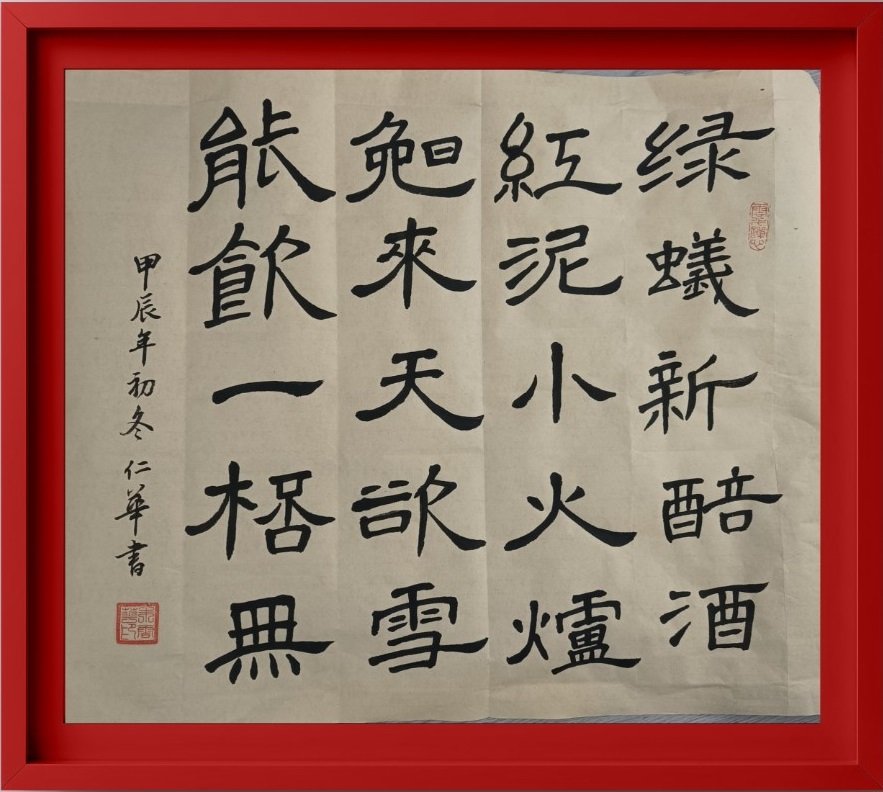 绿蟻新醅酒
紅泥小火爐
晚來天欲雪
能飲一桮無
甲辰年初冬 仁華書